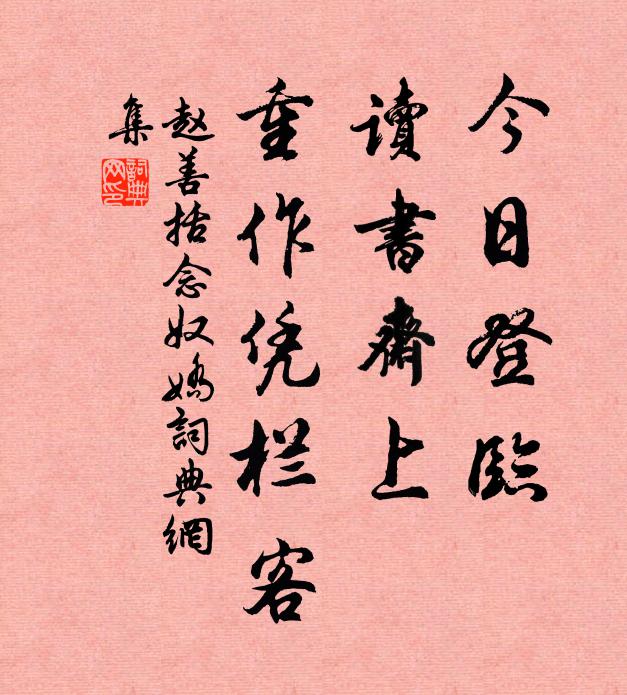 今日登臨
讀書齋上
重作凭栏客
赵善括念奴嬌詞典網
集
詞典网印